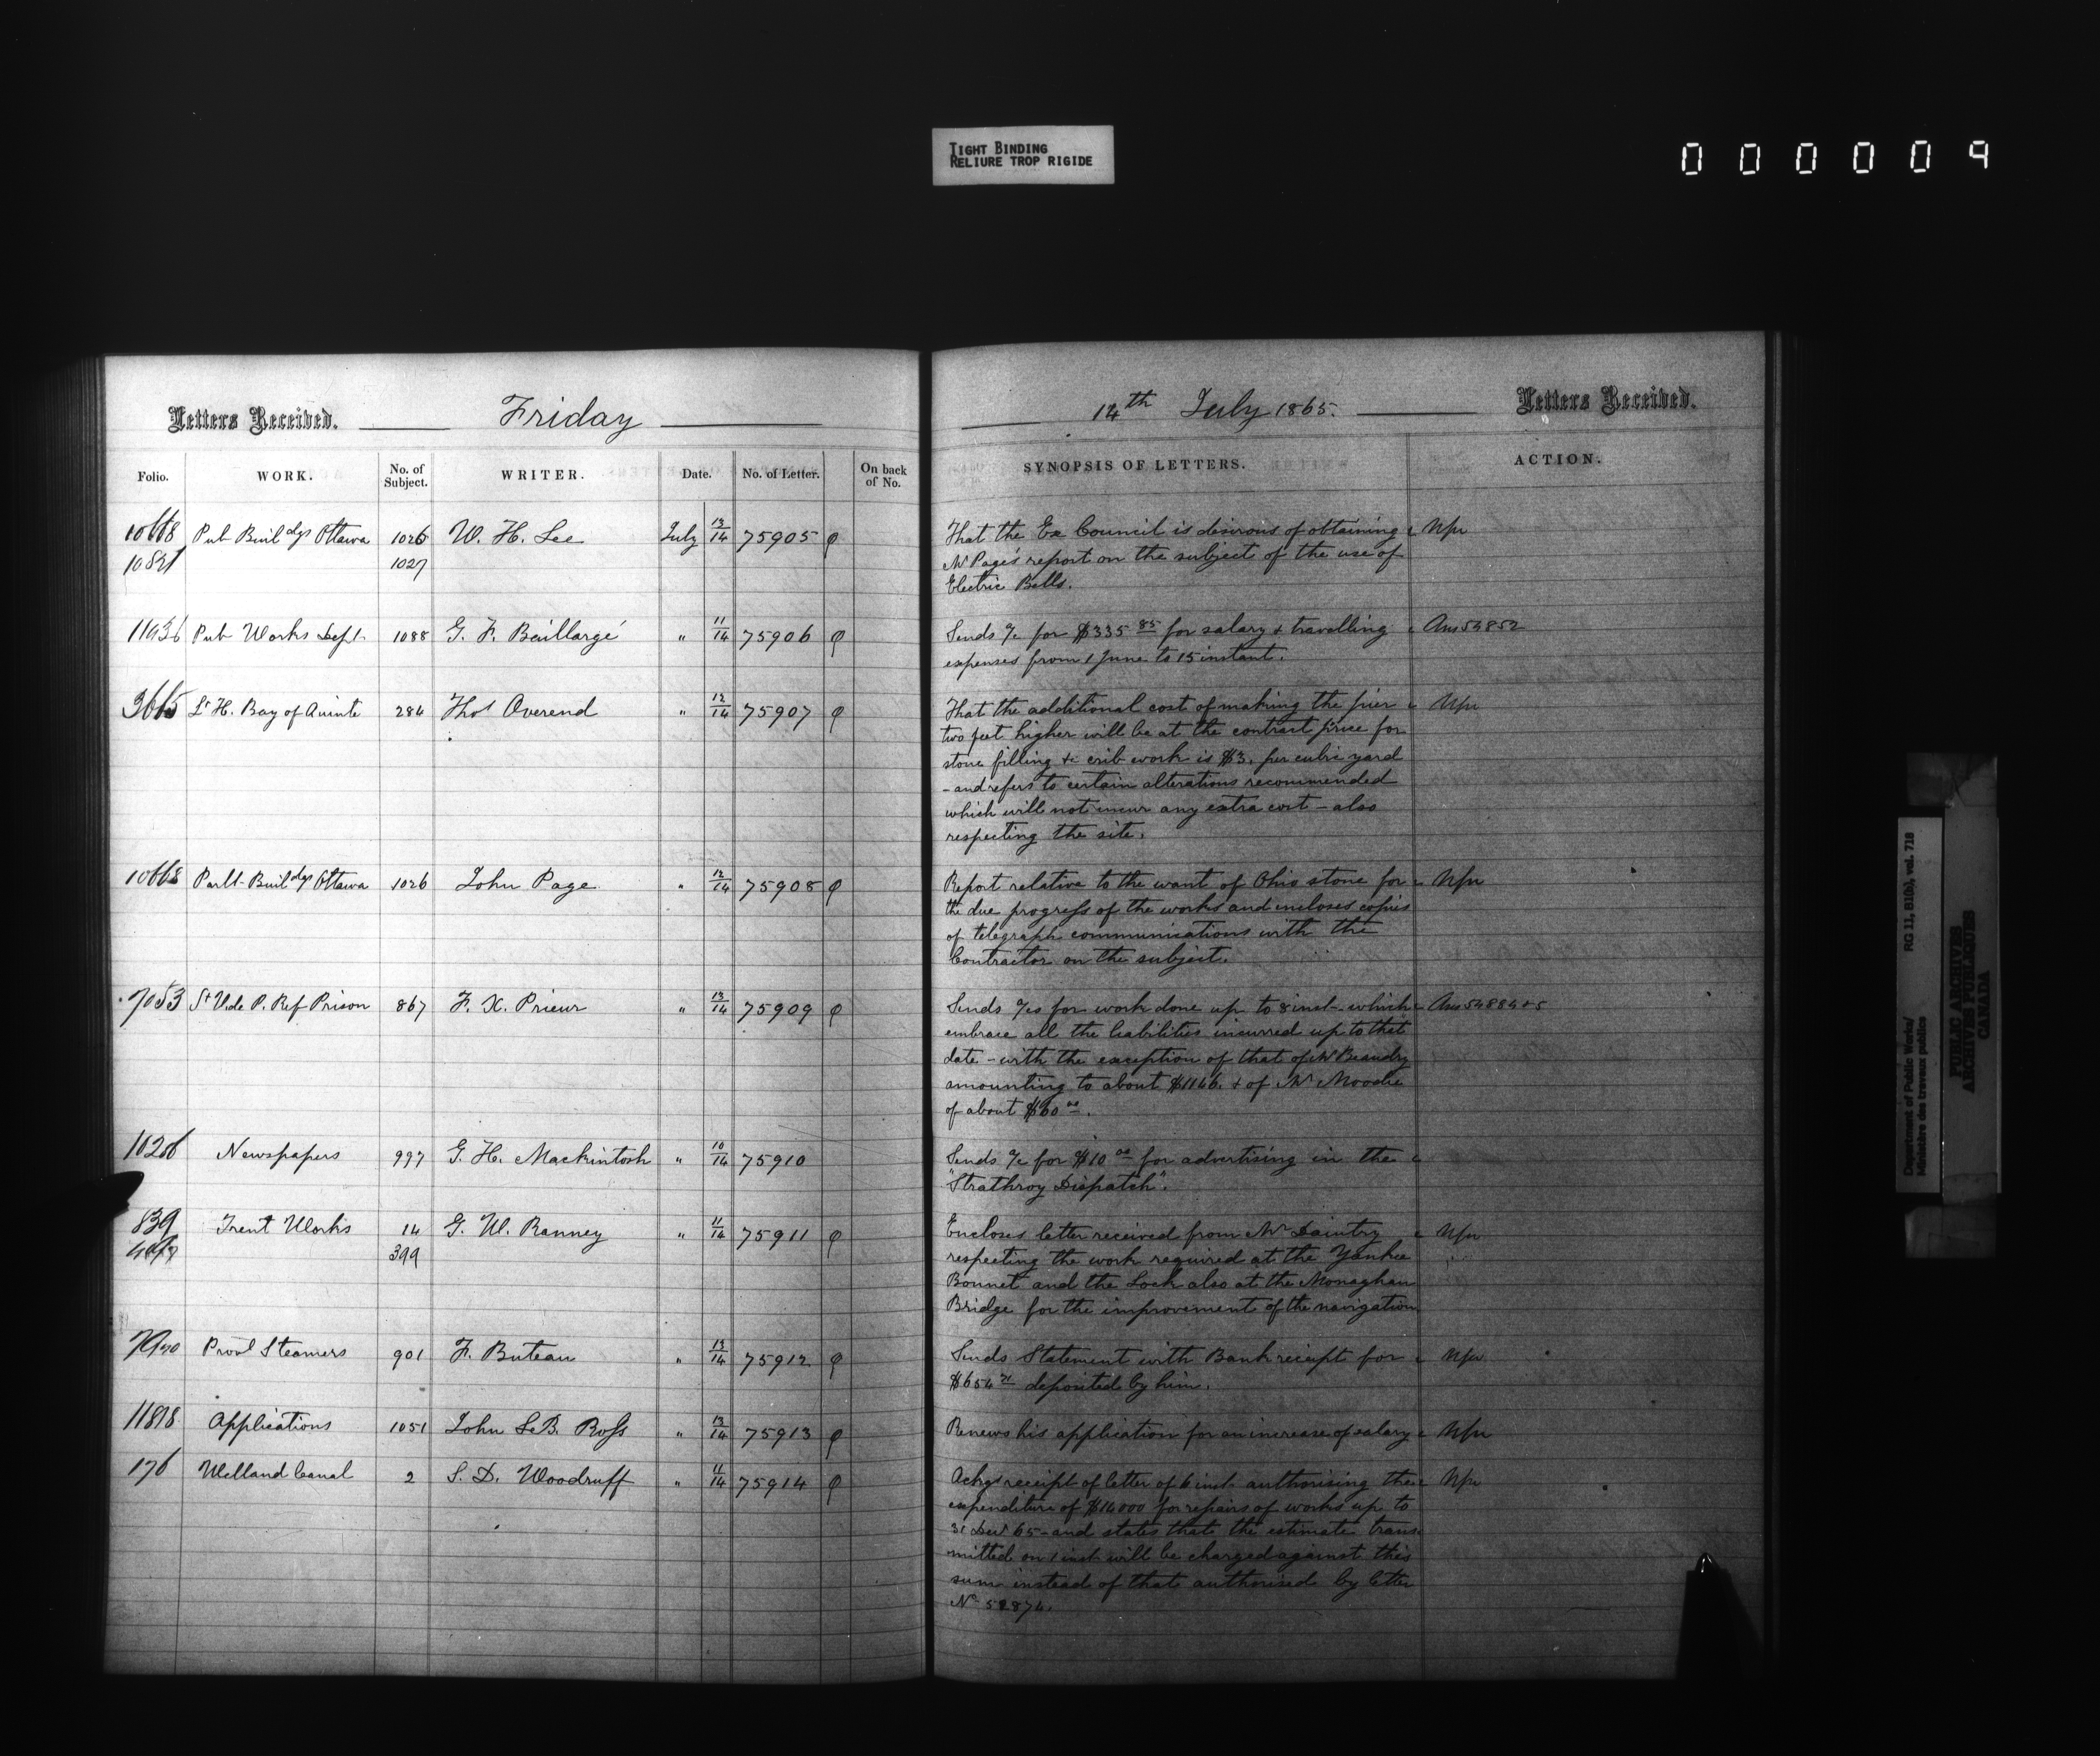 TIGHT BINDING
RELIURE TROP RIGIDE
000009
Letters Received. Friday
14th July 1865. Letters Received.
Folio. WORK. No. of Subject. WRITER. Date. No. of Letter. On back of No.
SYNOPSIS OF LETTERS. ACTION.
10668 Pub Buildgs Ottawa 1026 W. H. Lee July 13/14 75905
10821 1027
That the Ex Council is desirous of obtaining
Mr Page's report on the subject of the use of
Electric Bells.
11036 Pub Works Dept 1088 G. F. Baillargé " 11/14 75906
Sends a/c for $335 85 for salary & travelling Ans 54852
expenses from 1 June to 15 instant.
3665 Lt H. Bay of Quinté 284 Thos Overend " 12/14 75907
That the additional cost of making the pier
two feet higher will be at the contract price for
stone filling & crib work is $3. per cubic yard
- and refers to certain alterations recommended
which will not incur any extra cost - also
respecting the site.
10668 Parlt Buildgs Ottawa 1026 John Page " 12/14 75908
Report relative to the want of Ohio stone for
the due progress of the works and incloses copies
of telegraph communications with the
Contractor on the subject.
7053 St V. de P. Ref Prison 867 F. X. Prieur " 13/14 75909
Sends a/cs for work done up to 8 inst - which Ans 54884+5
embrace all the liabilities incurred up to that
date - with the exception of that of Mr Beaudry
amounting to about $1146. & of Mr Moodie
of about $60 00.
10206 Newspapers 997 G. H. Mackintosh " 10/14 75910
Sends a/c for $10 00 for advertising in the
"Strathroy Dispatch".
839 Trent Works 14 G. W. Ranney " 11/14 75911
399
Encloses letter received from Mr Daintry
respecting the work required at the Yankee
Bonnet and the Lock also at the Monaghan
Bridge for the improvement of the navigation
Provl Steamers 901 F. Buteau " 13/14 75912
Sends Statement with Bank receipt for
$654 71 deposited by him.
11818 Applications 1051 John LeB. Ross " 13/14 75913
Renews his application for an increase of salary
176 Welland Canal 2 S. D. Woodruff " 11/14 75914
Ackgs receipt of letter of 6 inst authorising the
expenditure of $14000 for repairs of works up to
31 Decr 65 - and states that the estimate trans
mitted on 1 inst will be charged against this
sum instead of that authorised by letter
No 52874.
Department of Public Works/
Ministère des travaux publics
RG 11, B1(b), vol. 718
PUBLIC ARCHIVES
ARCHIVES PUBLIQUES
CANADA